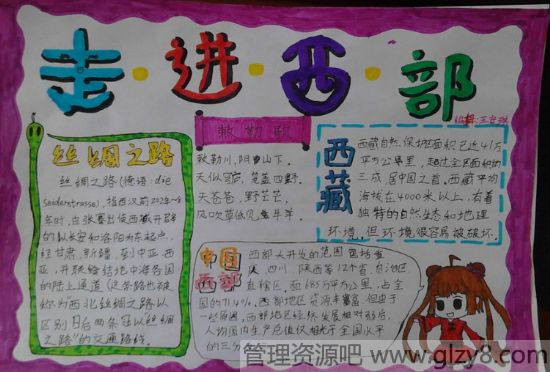 走·进·西·部
编辑:王
丝绸之路
丝绸之路(德语:die
Seidenstrasse),指西汉前202年-8
年时,由张骞出使西域开辟
的以长安和洛阳为东起点,
经甘肃、新疆,到中亚、西
亚,并联络结地中海各国
的陆上通道(这条路也被
称为西北丝绸之路以
区别日后两条冠以丝绸
之路"的交通路线。
敕勒歌
敕勒川,阴山下。
天似穹庐,笼盖四野。
天苍苍,野茫茫,
风吹草低见牛羊。
西藏
西藏自然保护区面积已达41万
平方公里,超过全区面积的
三成,居中国之首。西藏平均
海拔在4000米以上,有着
独特的自然生态和地理
环境,但环境很容易被破坏。
中国西部
西部大开发的范围包括重
庆、四川、陕西等12个省、自治区、
直辖区,面685万平方公里,占全
国的71.4%。西部地区资源丰富,但由于
一些原因,西部地区经济发展相对落后,
人均国内生产总值仅相当于全国水平
的三分
管理资源吧 www.glzy8.com